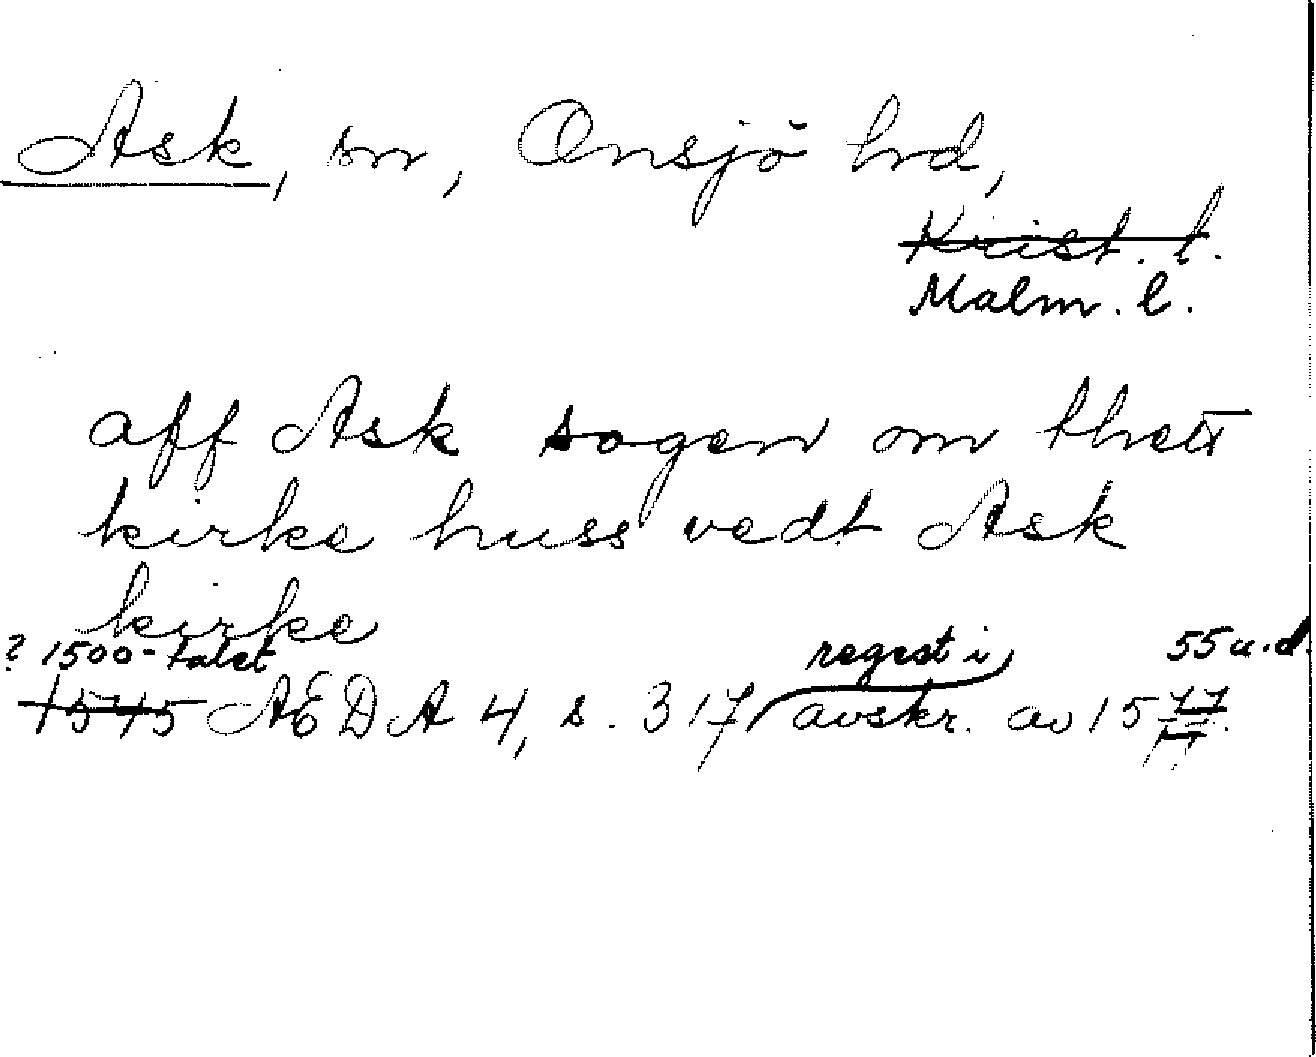 Ask, sn, Onsjö hrd,
Krist. l.
Malm. l.
aff Ask sogen om thett
kirke huss vedt Ask
kirke
? 1500-talet regest i 55 u.d.
1545 AEDA 4, s. 317 avskr. av 15